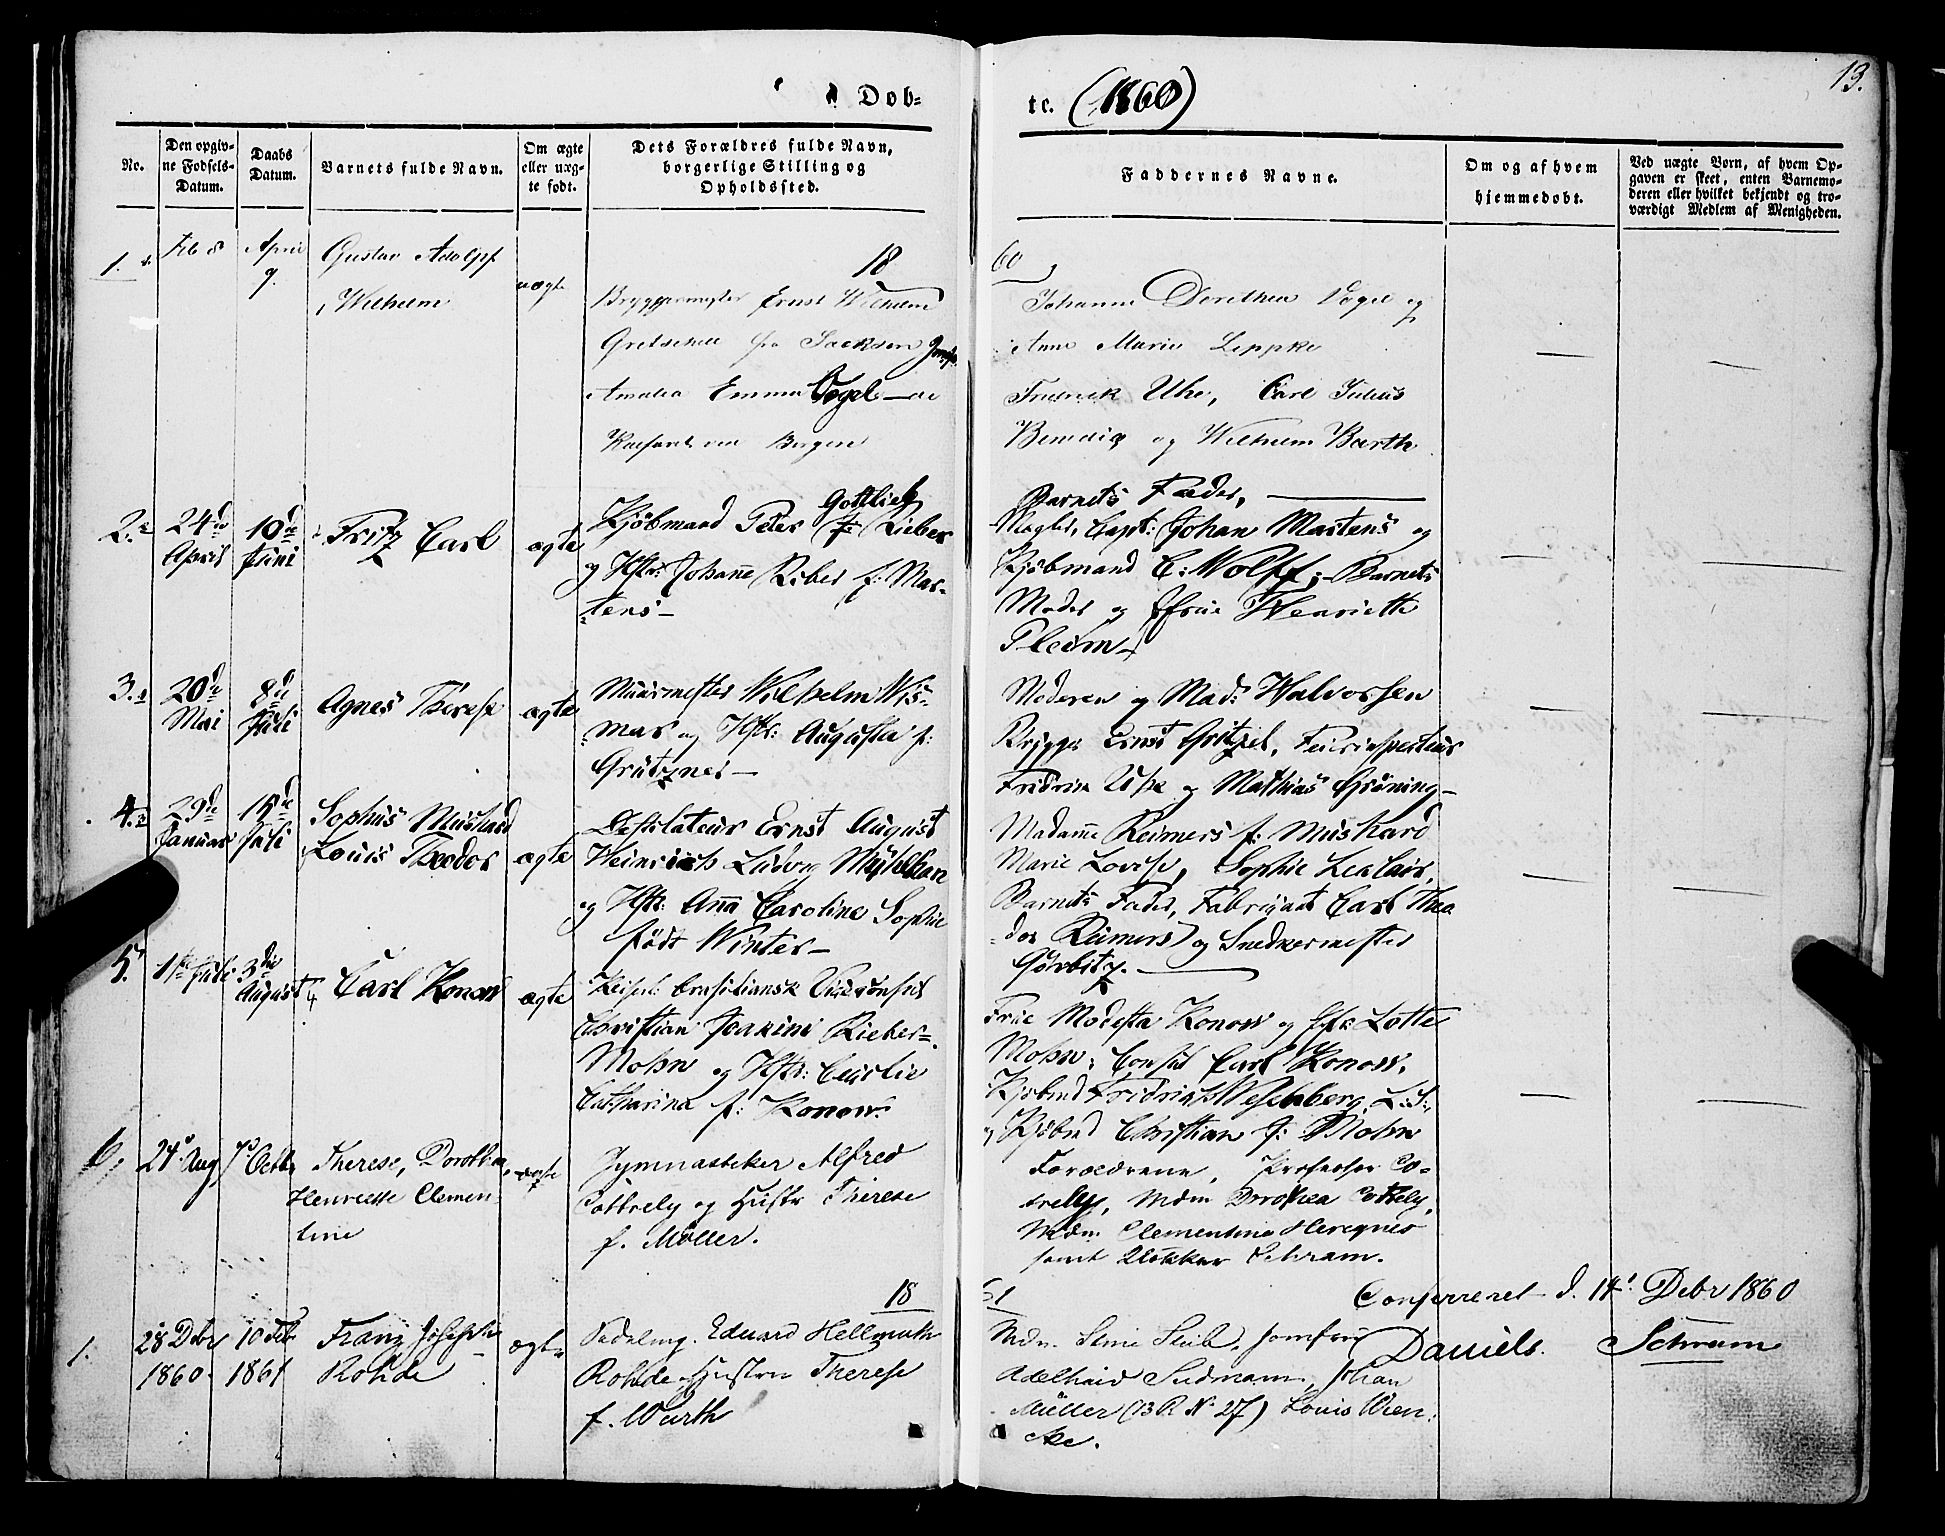 13.
Dob-
te. (1860)
No.
Den opgiv-
ne Fødsels-
Datum.
Daabs
Datum.
Barnets fulde Navn.
Om ægte
eller uæg-
te født.
Dets Forældres fulde Navn,
borgerlige Stilling og
Opholdssted.
Faddernes Navne.
Om og af hvem
hjemmedøbt.
Ved uægte Børn, af hvem Op-
gaven er skeet, enten Barnemo-
deren eller hvilket bekjendt og tro-
værdigt Medlem af Menigheden.
18
60
1.
Feb 8
April
9.
Gustav Adolph
Wilhelm
uægte
Bryggermester Ernst Wilhelm
Gretschel fra Sachsen
Amalia Emma Vogel
Kalfaret ved Bergen
Johanne Dorothea Vogel og
Anne Marie Leppke
Fredrick Uhe, Carl Julius
Bendix og Wilhelm Barth
2.
24de
April
10de
Juni
Fritz Carl
ægte
Gottlieb
Kjøbmand Peter f: Rieber
og Hstr: Johanne Rieber f: Mar-
tens-
Barnets Fader,
Mægler, Capt: Johan Martens og
Kjøbmand C: Wolff; Barnets
Moder og Frue Henriette
Pleúm
3.
20de
Mai
8de
Juli
Agnes Therese
ægte
Muurmester Wilhelm Wis-
mar og Hstr: Augusta f:
Grützner-
Moderen og Mad: Halvorsen
Brygger Ernst Gritzel,
Fridrich Uhe og Mathias Grøning-
4.
29de
Januar
15de
Juli
Sophus Mushard
Louis Theodor
ægte
Destilateur Ernst August
Heinrich Ludvig Mühlhan
og Hstr: Anna Caroline Sophie
født Winter-
Madame Reimers f: Mushard
Marie Lovise, Sophie Leclair,
Barnets Fader, Fabrikant Carl Theo
dor Reimers og Snedkermester
Görbitz.
5.
1ste Juli
3die
August
Carl Konow
ægte
Keiserl: brasiliansk Viceconsul
Christian Joakim Rieber-
Mohn og Hstr: Cecilie
Catharina f: Konow.
Frue Modesta Konow og Lotte
Mohn; Consul Carl Konow,
Kjøbmd Fridrich Wesenberg,
og Kjøbmd Christian f: Mohn
6.
24 Aug
7 Octb
Therese, Dorothea,
Henriette Clemen-
tine
ægte
Gymnastiker Alfred
Cottrely og Hustr Therese
f. Møller.
Forældrene, Professor Co-
trelly, Mdm Dorothea Cottrely,
Mdm. Clementine
samt Klokker Schram.
Conferreret d. 14. Debr 1860
Daniels. Schram
18
61
1.
28 Debr
1860.
10 Feb
1861
Franz Joseph
Rohde
ægte
Sadelmg. Eduard Hellmuth
Rohde Hustru Therese
f. Wurth
Mdm. Stine Jomfru
Adelhaid Johan
Müller (B R No 27) Louis Wien-
cke.